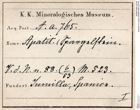 K. K. Mineralogisches Museum.
Acq. Post A. a. 765.
Name Apatit. Spargelstein.
V. d. N. n. 88. M. 523.
Fundort Jumilla, Spanien.